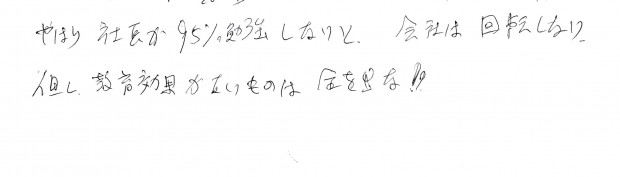 やはり 社長が95%勉強しないと、会社は回転しない、
但し、教育効果がないものは金を出すな!!